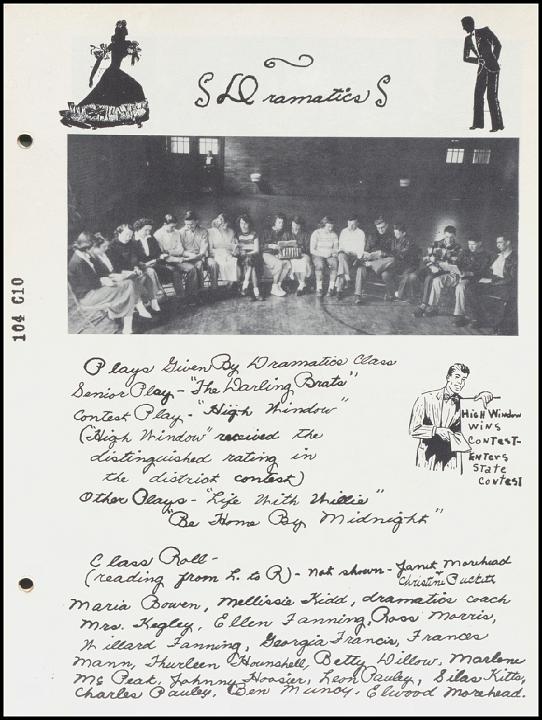 Dramatics
104 C10
Plays Given By Dramatics Class
Senior Play - "The Darling Brats"
Contest Play - "High Window"
("High Window" received the
distinguished rating in
the district contest)
Other Plays - "Life With Willie"
"Be Home By Midnight"
High Window
Wins
Contest-
Enters
State
Contest
Class Roll-
(reading from L. to R) - Not shown - Janet Morehead
Christine Puckett
Maria Bowen, Mellissie Kidd, dramatics coach
Mrs. Kegley, Ellen Fanning, Ross Morris,
Willard Fanning, Georgia Francis, Frances
Mann, Thurleen Hounshell, Betty Dillow, Marlene
Mc Peak, Johnny Hoosier, Leon Pauley, Silas Kitts,
Charles Pauley, Ben Muncy, Elwood Morehead.